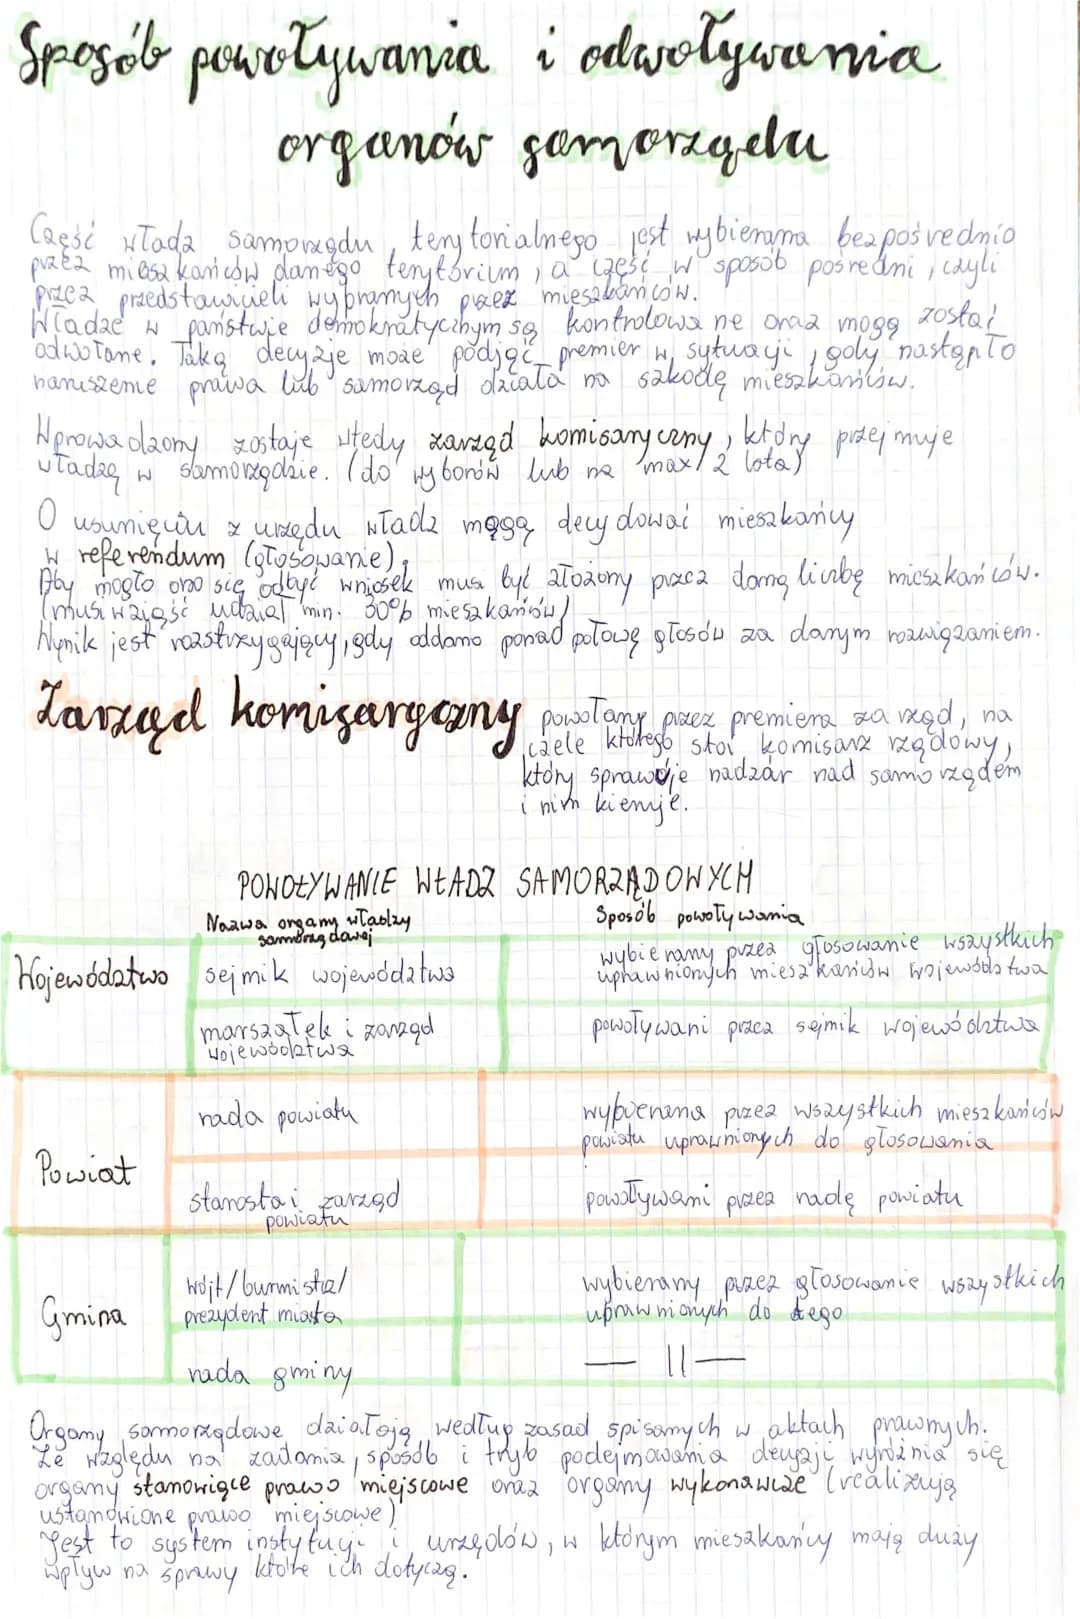 Sposób powoływania i odwoływania
organów samorządu
Część władz samorządu terytorialnego jest wybierana bezpośrednio
przez mieszkańców danego terytorium, a część w sposób pośredni, czyli
przez przedstawicieli wybranych przez mieszkańców.
Władze w państwie demokratycznym są kontrolowane oraz mogą zostać
odwołane. Taką decyzje może podjąć premier w sytuacji, gdy nastąpiło
naruszenie prawa lub samorząd działa na szkodę mieszkańców.
Wprowadzony zostaje wtedy zarząd komisaryczny, który przejmuje
władzę w samorządzie. (do wyborów lub na max 2 lata)
O usunięciu z urzędu władz mogą decydować mieszkańcy
w referendum (głosowanie).
Aby mogło ono się odbyć wniosek musi być złożony przez daną liczbę mieszkańców.
(musi wziąść udział min. 30% mieszkańców)
Wynik jest rozstrzygający, gdy oddano ponad połowę głosów za danym rozwiązaniem.
Zarząd komisaryczny powołany przez premiera zarząd, na
czele którego stoi komisarz rządowy,
który sprawuje nadzór nad samorządem
i nim kieruje.
POWOŁYWANIE WŁADZ SAMORZĄDOWYCH
Nazwa organu władzy samorządowej
Sposób powoływania
Województwo
sejmik województwa
wybierany przez głosowanie wszystkich
uprawnionych mieszkańców województwa
marszałek i zarząd
województwa
powoływani przez sejmik województwa
Powiat
rada powiatu
wybierana przez wszystkich mieszkańców
powiatu uprawnionych do głosowania
starosta i zarząd
powiatu
powoływani przez radę powiatu
Gmina
wójt/burmistrz/
prezydent miasta
wybierany przez głosowanie wszystkich
uprawnionych do tego
rada gminy
— 11 —
Organy samorządowe działają według zasad spisanych w aktach prawnych.
Ze względu na zadania, sposób i tryb podejmowania decyzji wyróżnia się
organy stanowiące prawo miejscowe oraz organy wykonawcze (realizują
ustanowione prawo miejscowe)
Jest to system instytucji i urzędów, w którym mieszkańcy mają duży
wpływ na sprawy które ich dotyczą.